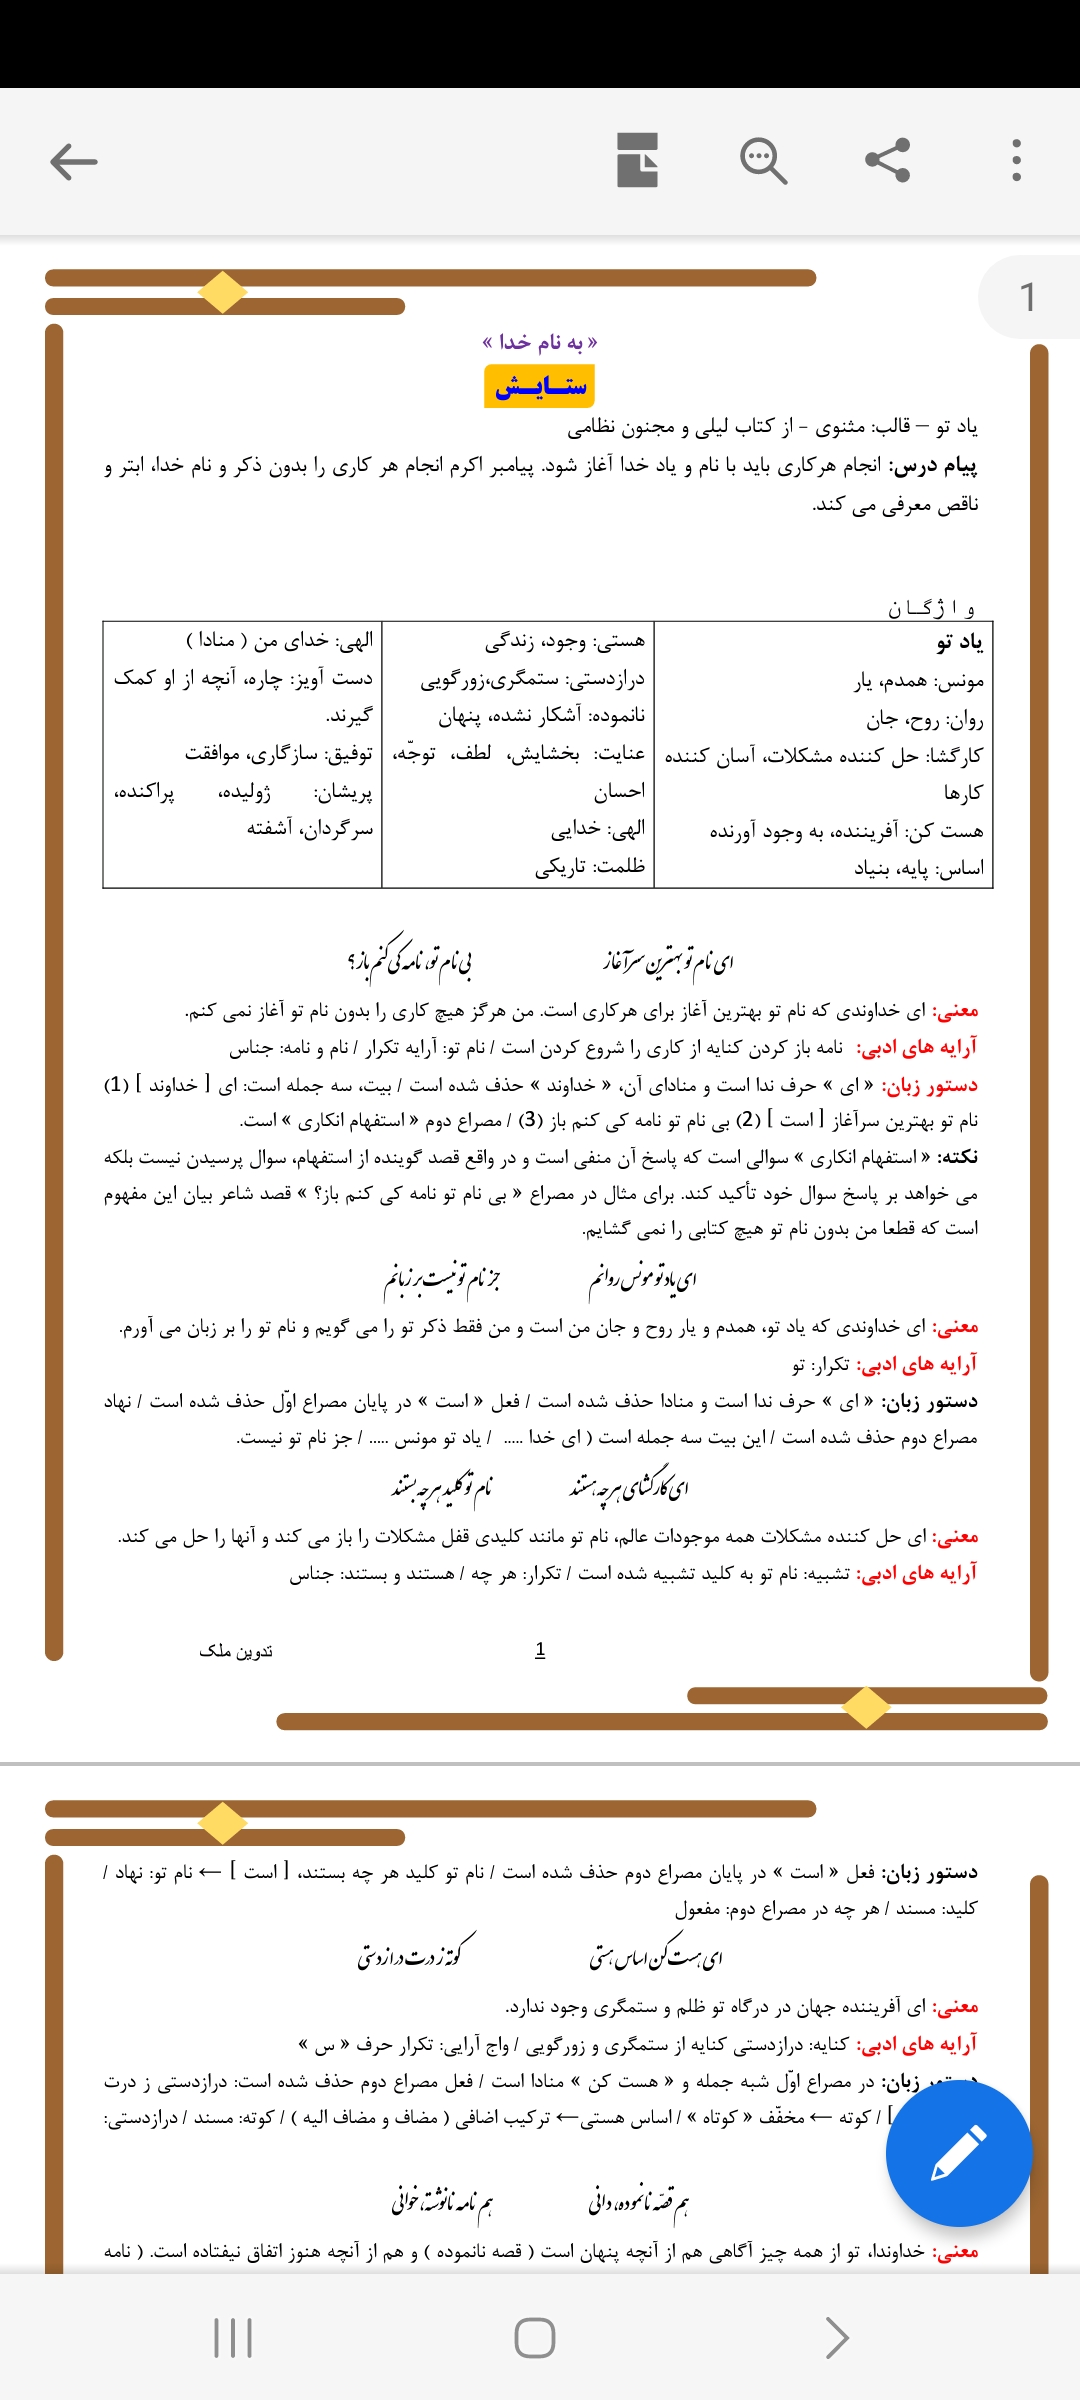 1
« به نام خدا »
ستــایــش
یاد تو – قالب: مثنوی - از کتاب لیلی و مجنون نظامی
پیام درس: انجام هرکاری باید با نام و یاد خدا آغاز شود. پیامبر اکرم انجام هر کاری را بدون ذکر و نام خدا، ابتر و
ناقص معرفی می کند.
واژگـان
یاد تو
مونس: همدم، یار
روان: روح، جان
کارگشا: حل کننده مشکلات، آسان کننده
کارها
هست کن: آفریننده، به وجود آورنده
اساس: پایه، بنیاد
هستی: وجود، زندگی
درازدستی: ستمگری،زورگویی
نانموده: آشکار نشده، پنهان
عنایت: بخشایش، لطف، توجّه،
احسان
الهی: خدایی
ظلمت: تاریکی
الهی: خدای من ( منادا )
دست آویز: چاره، آنچه از او کمک
گیرند.
توفیق: سازگاری، موافقت
پریشان: ژولیده، پراکنده،
سرگردان، آشفته
ای نام تو بهترین سرآغاز بی نام تو، نامه کی کنم باز؟
معنی: ای خداوندی که نام تو بهترین آغاز برای هرکاری است. من هرگز هیچ کاری را بدون نام تو آغاز نمی کنم.
آرایه های ادبی: نامه باز کردن کنایه از کاری را شروع کردن است / نام تو: آرایه تکرار / نام و نامه: جناس
دستور زبان: « ای » حرف ندا است و منادای آن، « خداوند » حذف شده است / بیت، سه جمله است: ای [ خداوند ] (1)
نام تو بهترین سرآغاز [ است ] (2) بی نام تو نامه کی کنم باز (3) / مصراع دوم « استفهام انکاری » است.
نکته: « استفهام انکاری » سوالی است که پاسخ آن منفی است و در واقع قصد گوینده از استفهام، سوال پرسیدن نیست بلکه
می خواهد بر پاسخ سوال خود تأکید کند. برای مثال در مصراع « بی نام تو نامه کی کنم باز؟ » قصد شاعر بیان این مفهوم
است که قطعا من بدون نام تو هیچ کتابی را نمی گشایم.
ای یاد تو مونس روانم جز نام تو نیست بر زبانم
معنی: ای خداوندی که یاد تو، همدم و یار روح و جان من است و من فقط ذکر تو را می گویم و نام تو را بر زبان می آورم.
آرایه های ادبی: تکرار: تو
دستور زبان: « ای » حرف ندا است و منادا حذف شده است / فعل « است » در پایان مصراع اوّل حذف شده است / نهاد
مصراع دوم حذف شده است / این بیت سه جمله است ( ای خدا ..... / یاد تو مونس ..... / جز نام تو نیست.
ای کارگشای هر چه هستند نام تو کلید هر چه بستند
معنی: ای حل کننده مشکلات همه موجودات عالم، نام تو مانند کلیدی قفل مشکلات را باز می کند و آنها را حل می کند.
آرایه های ادبی: تشبیه: نام تو به کلید تشبیه شده است / تکرار: هر چه / هستند و بستند: جناس
1
تدوین ملک
دستور زبان: فعل « است » در پایان مصراع دوم حذف شده است / نام تو کلید هر چه بستند، [ است ] ← نام تو: نهاد /
کلید: مسند / هر چه در مصراع دوم: مفعول
ای هست کن اساس هستی کوته ز درت درازدستی
معنی: ای آفریننده جهان در درگاه تو ظلم و ستمگری وجود ندارد.
آرایه های ادبی: کنایه: درازدستی کنایه از ستمگری و زورگویی / واج آرایی: تکرار حرف « س »
دستور زبان: در مصراع اوّل شبه جمله و « هست کن » منادا است / فعل مصراع دوم حذف شده است: درازدستی ز درت
] / کوته ← مخفّف « کوتاه » / اساس هستی← ترکیب اضافی ( مضاف و مضاف الیه ) / کوته: مسند / درازدستی:
هم قصّه نانموده، دانی هم نامه نانوشته، خوانی
معنی: خداوندا، تو از همه چیز آگاهی هم از آنچه پنهان است ( قصه نانموده ) و هم از آنچه هنوز اتفاق نیفتاده است. ( نامه